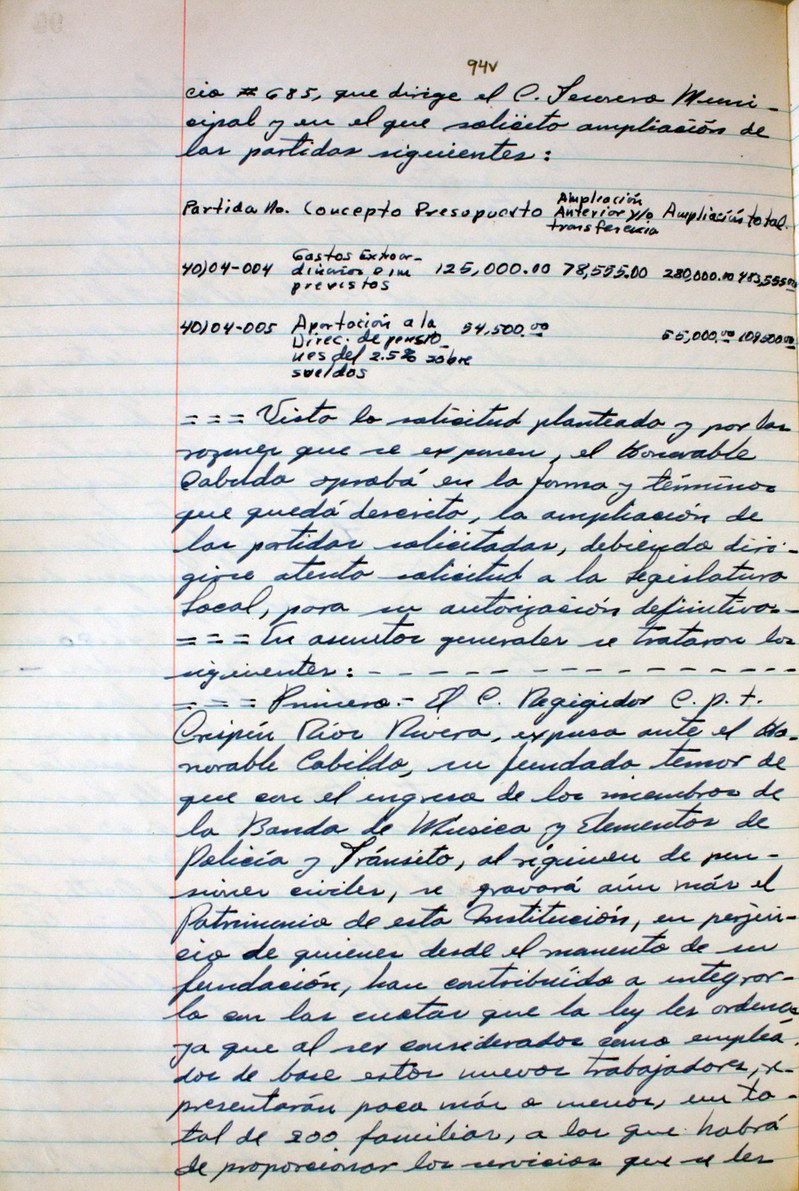 94v
cio # 685, que dirige el C. Tesorero Muni-
cipal y en el que solicito ampliación de
las partidas siguientes:
Partida No. Concepto Presupuesto Ampliación Anterior y/o transferencia Ampliación total.
40104-004 Gastos Extraor- 125,000.00 78,555.00 280,000.00 483,555.00
dinarios e im
previstos
40104-005 Aportación a la 54,500.00 55,000.00 109,500.00
Direc. de pensio-
nes del 2.5% sobre
sueldos
= = = Vista la solicitud planteada y por las
razones que se exponen, el Honorable
Cabildo aprobá en la forma y términos
que quedá descrito, la ampliación de
las partidas solicitadas, debiendo diri-
girse atenta solicitud a la Legislatura
Local, para su autorización definitiva.-
= = = En asuntos generales se trataron los
siguientes: - - - - - - - - - - - - -
= = = Primero.- El C. Regigidor C. P. t.
Crispín Ríos Rivera, expuso ante el Ho-
norable Cabildo, su fundado temor de
que con el ingreso de los miembros de
la Banda de Música y Elementos de
Policía y Tránsito, al régimen de pen-
siones civiles, se gravará aún más el
Patrimonio de esta Institución, en perjui-
cio de quienes desde el momento de su
fundación, han contribuído a integrar-
la con las cuotas que la ley les ordena,
ya que al ser considerados como emplea-
dos de base estos nuevos trabajadores, re-
presentarán poco más o menos, un to-
tal de 200 familias, a las que habrá
de proporcionar los servicios que se les